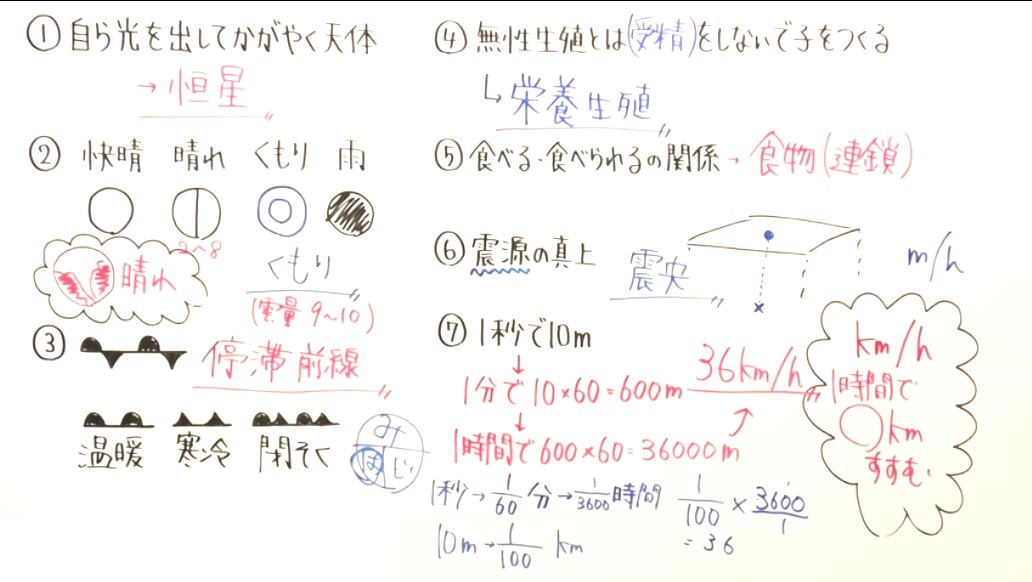 ① 自ら光を出してかがやく天体
→ 恒星
② 快晴 晴れ くもり 雨
2～8
晴れ
くもり
(雲量 9～10)
③ 停滞前線
温暖 寒冷 閉そく
み
は じ
④ 無性生殖とは(受精)をしないで子をつくる
↳ 栄養生殖
⑤ 食べる・食べられるの関係 → 食物(連鎖)
⑥ 震源の真上 震央
m/h
⑦ 1秒で10m
↓
1分で 10×60=600m
36km/h
↓
1時間で 600×60=36000m
1秒→1/60分→1/3600時間
10m→1/100 km
1/100 × 3600/1
=36
km/h
1時間で
○km
すすむ